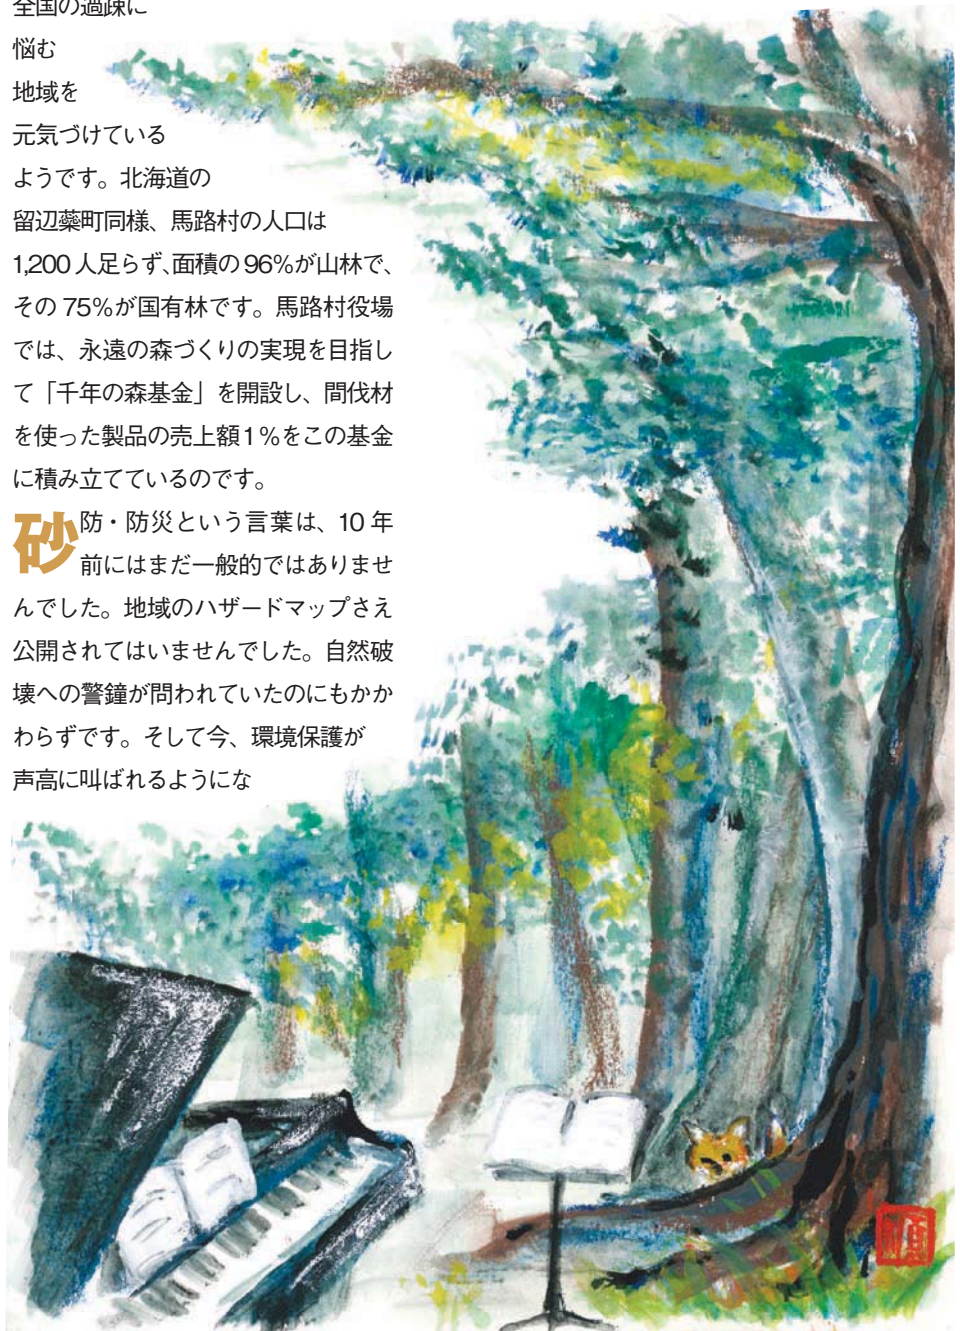 全国の過疎に
悩む
地域を
元気づけている
ようです。北海道の
留辺蘂町同様、馬路村の人口は
1,200人足らず、面積の96%が山林で、
その75%が国有林です。馬路村役場
では、永遠の森づくりの実現を目指し
て「千年の森基金」を開設し、間伐材
を使った製品の売上額1%をこの基金
に積み立てているのです。
砂防・防災という言葉は、10年
前にはまだ一般的ではありませ
んでした。地域のハザードマップさえ
公開されてはいませんでした。自然破
壊への警鐘が問われていたのにもかか
わらずです。そして今、環境保護が
声高に叫ばれるようにな